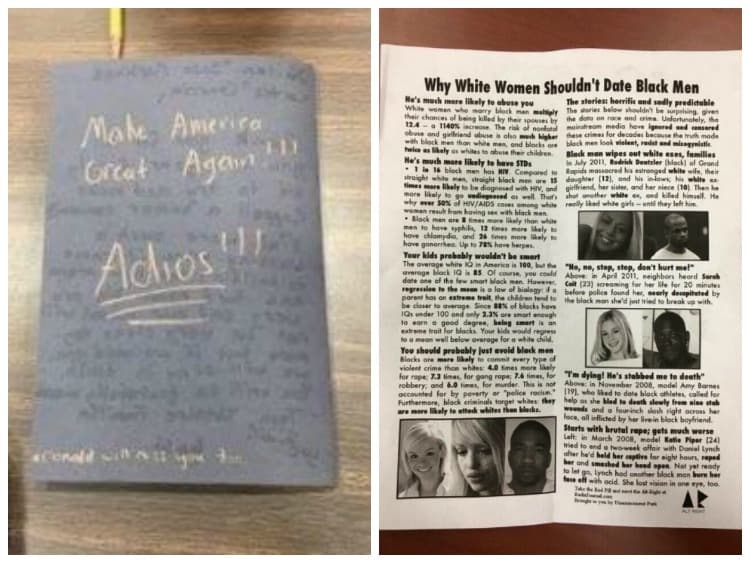 Make America
Great Again!!!
Adios!!!
Donald will miss you too
Why White Women Shouldn't Date Black Men
He's much more likely to abuse you
White women who marry black men multiply
their chances of being killed by their spouses by
12.4 – a 1140% increase. The risk of nonfatal
abuse and girlfriend abuse is also much higher
with black men than white men, and blacks are
twice as likely as whites to abuse their children.
He's much more likely to have STDs
• 1 in 16 black men has HIV. Compared to
straight white men, straight black men are 15
times more likely to be diagnosed with HIV, and
more likely to go undiagnosed as well. That's
why over 50% of HIV/AIDS cases among white
women result from having sex with black men.
• Black men are 8 times more likely than white
men to have syphilis, 12 times more likely to
have chlamydia, and 26 times more likely to
have gonorrhea. Up to 78% have herpes.
Your kids probably wouldn't be smart
The average white IQ in America is 100, but the
average black IQ is 85. Of course, you could
date one of the few smart black men. However,
regression to the mean is a law of biology: if a
parent has an extreme trait, the children tend to
be closer to average. Since 88% of blacks have
IQs under 100 and only 2.3% are smart enough
to earn a good degree, being smart is an
extreme trait for blacks. Your kids would regress
to a mean well below average for a white child.
You should probably just avoid black men
Blacks are more likely to commit every type of
violent crime than whites: 4.0 times more likely
for rape; 7.3 times, for gang rape; 7.6 times, for
robbery; and 6.0 times, for murder. This is not
accounted for by poverty or "police racism."
Furthermore, black criminals target whites: they
are more likely to attack whites than blacks.
The stories: horrific and sadly predictable
The stories below shouldn't be surprising, given
the data on race and crime. Unfortunately, the
mainstream media have ignored and censored
these crimes for decades because the truth made
black men look violent, racist and misogynistic.
Black man wipes out white exes, families
In July 2011, Rodrick Dantzler (black) of Grand
Rapids massacred his estranged white wife, their
daughter (12), and his in-laws; his white ex-
girlfriend, her sister, and her niece (10). Then he
shot another white ex, and killed himself. He
really liked white girls – until they left him.
"No, no, stop, stop, don't hurt me!"
Above: in April 2011, neighbors heard Sarah
Coit (23) screaming for her life for 20 minutes
before police found her, nearly decapitated by
the black man she'd just tried to break up with.
"I'm dying! He's stabbed me to death"
Above: in November 2008, model Amy Barnes
(19), who liked to date black athletes, called for
help as she bled to death slowly from nine stab
wounds and a four-inch slash right across her
face, all inflicted by her live-in black boyfriend.
Starts with brutal rape; gets much worse
Left: in March 2008, model Katie Piper (24)
tried to end a two-week affair with Daniel Lynch
after he'd held her captive for eight hours, raped
her and smashed her head open. Not yet ready
to let go, Lynch had another black man burn her
face off with acid. She lost vision in one eye, too.
Take the Red Pill and meet the Alt-Right at
AR
ALT RIGHT